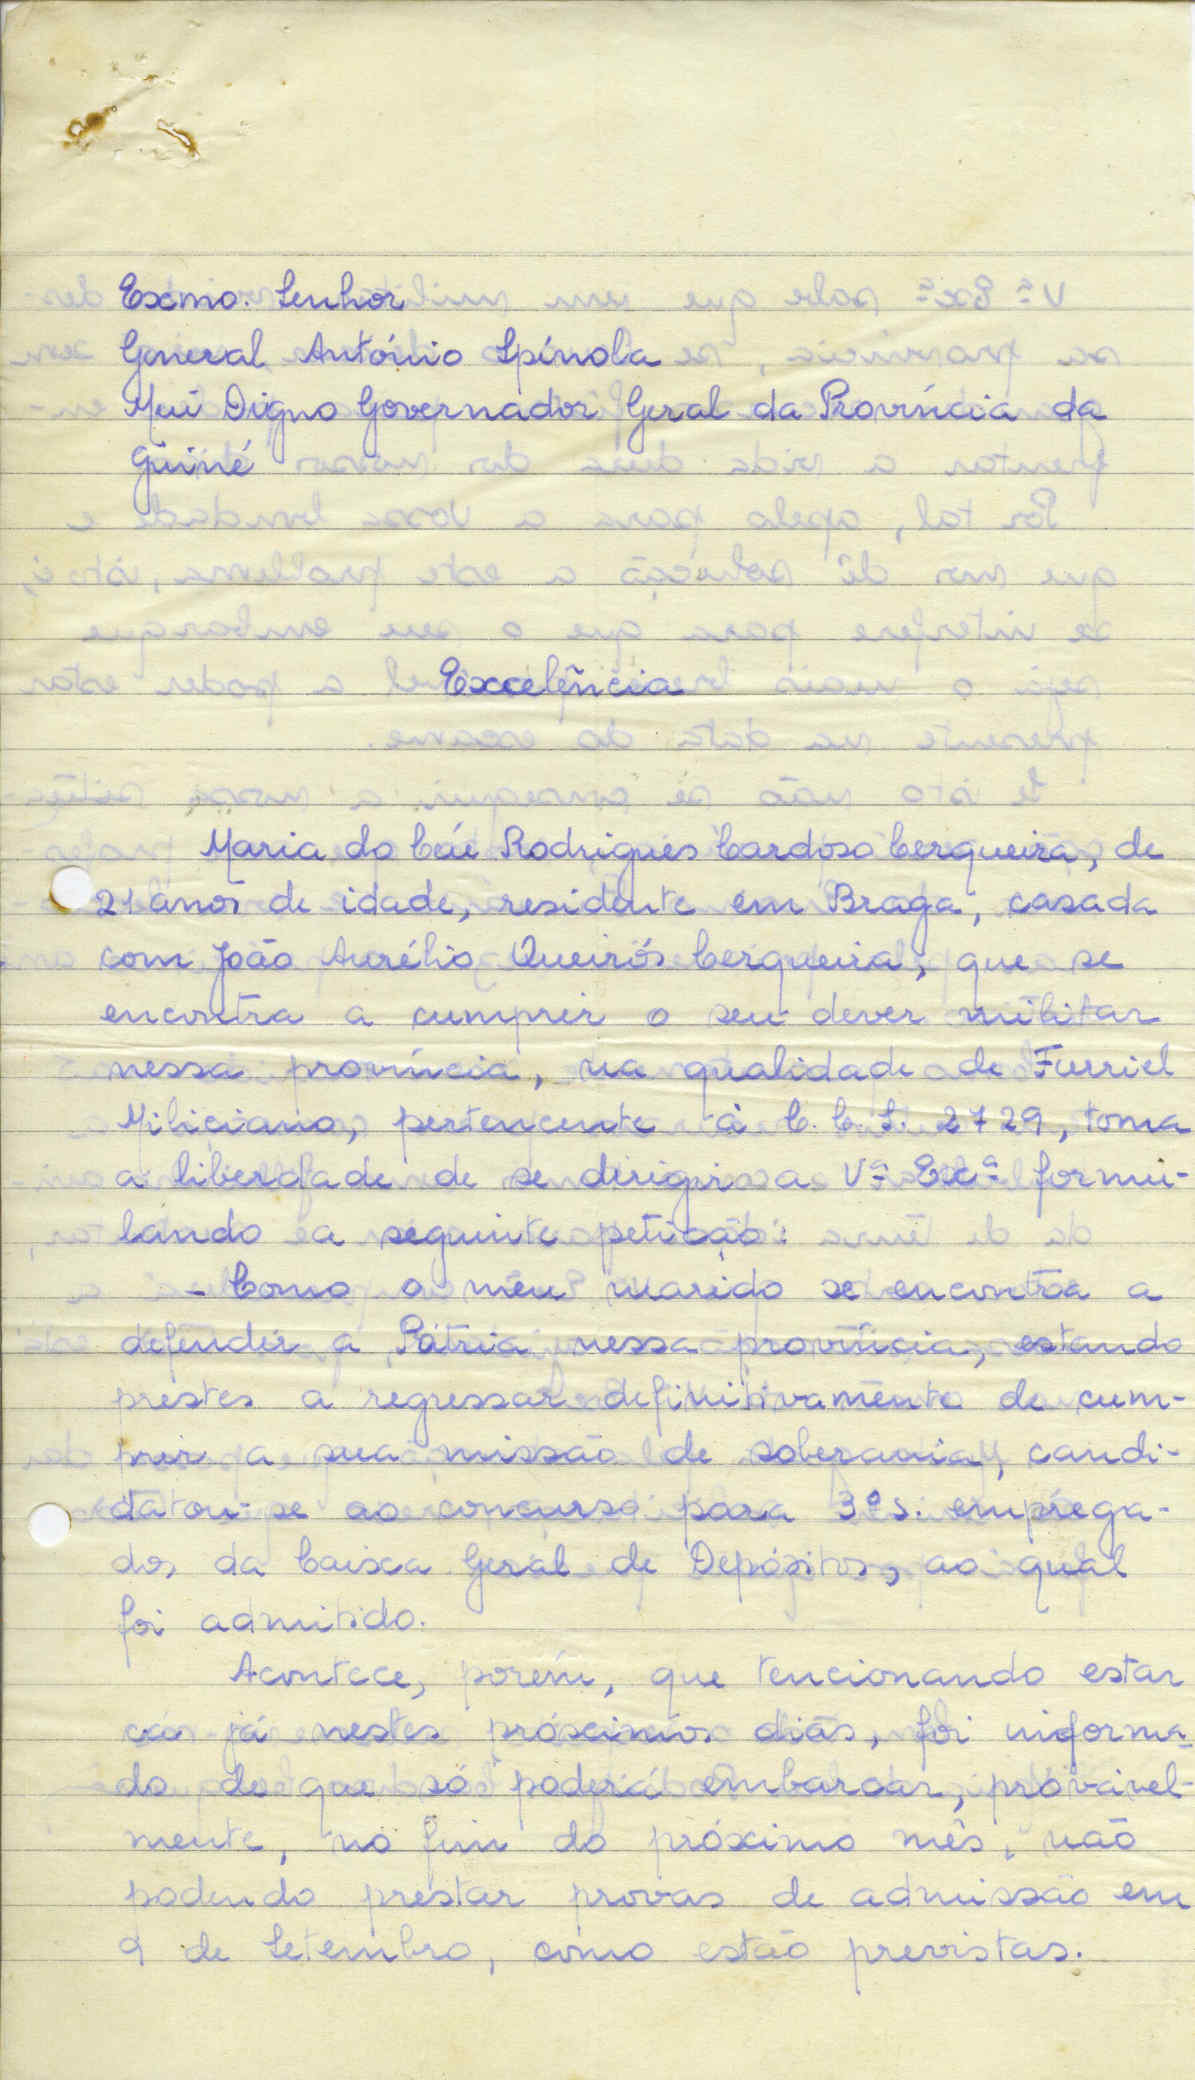 Exmo. Senhor
General António Spínola
Mui Digno Governador Geral da Província da
Guiné
Excelência
Maria do Céu Rodrigues Cardoso Cerqueira, de
21 anos de idade, residente em Braga, casada
com João Aurélio Queirós Cerqueira, que se
encontra a cumprir o seu dever militar
nessa província, na qualidade de Furriel
Miliciano, pertencente à C. C. S. 2729, toma
a liberdade de se dirigir a Vª Excª formu-
lando a seguinte petição:
- Como o meu marido se encontra a
defender a Pátria nessa província, estando
prestes a regressar definitivamente de cum-
prir a sua missão de soberania, candi-
datou-se ao concurso para 3ºs. emprega-
dos da Caixa Geral de Depósitos, ao qual
foi admitido.
Acontece, porém, que tencionando estar
cá já nestes próximos dias, foi informa-
do de que só poderá embarcar, provàvel-
mente, no fim do próximo mês, não
podendo prestar provas de admissão em
9 de Setembro, como estão previstas.